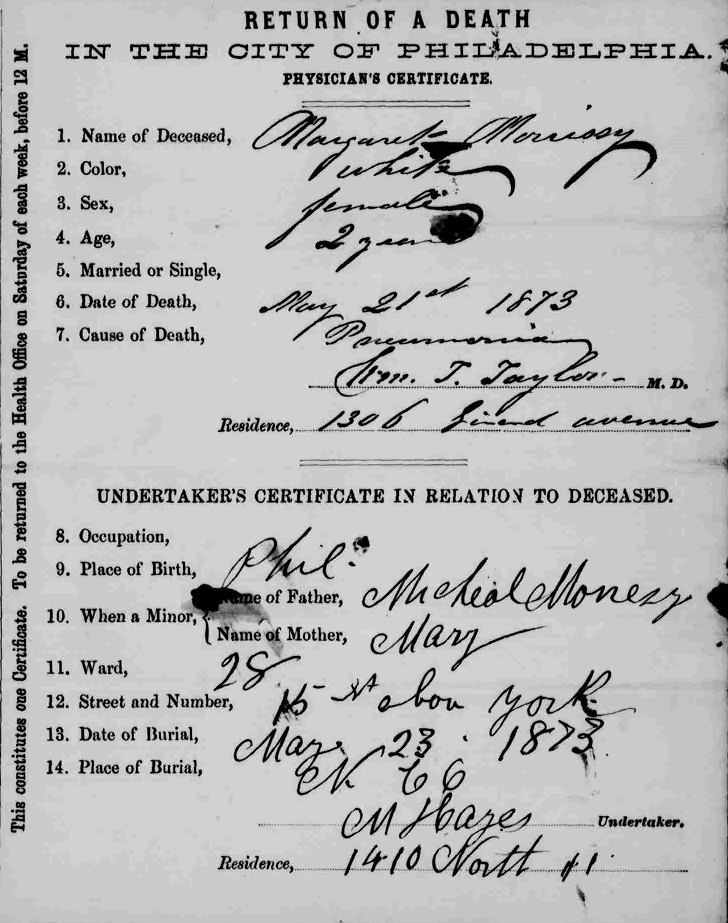 RETURN OF A DEATH
IN THE CITY OF PHILADELPHIA.
PHYSICIAN'S CERTIFICATE.
1. Name of Deceased, Margaret Morrissy
2. Color, white
3. Sex, female
4. Age, 2 years
5. Married or Single,
6. Date of Death, May 21st 1873
7. Cause of Death, Pneumonia
Wm. T. Taylor M. D.
Residence, 1306 Girard avenue
UNDERTAKER'S CERTIFICATE IN RELATION TO DECEASED.
8. Occupation,
9. Place of Birth, Phil.
10. When a Minor, Name of Father, Micheal
Name of Mother, Mary
11. Ward, 28
12. Street and Number, 15 St abov york
13. Date of Burial, May 23. 1873
14. Place of Burial, N C C
M Hayes Undertaker.
Residence, 1410 North 11
This constitutes one Certificate. To be returned to the Health Office on Saturday of each week, before 12 M.